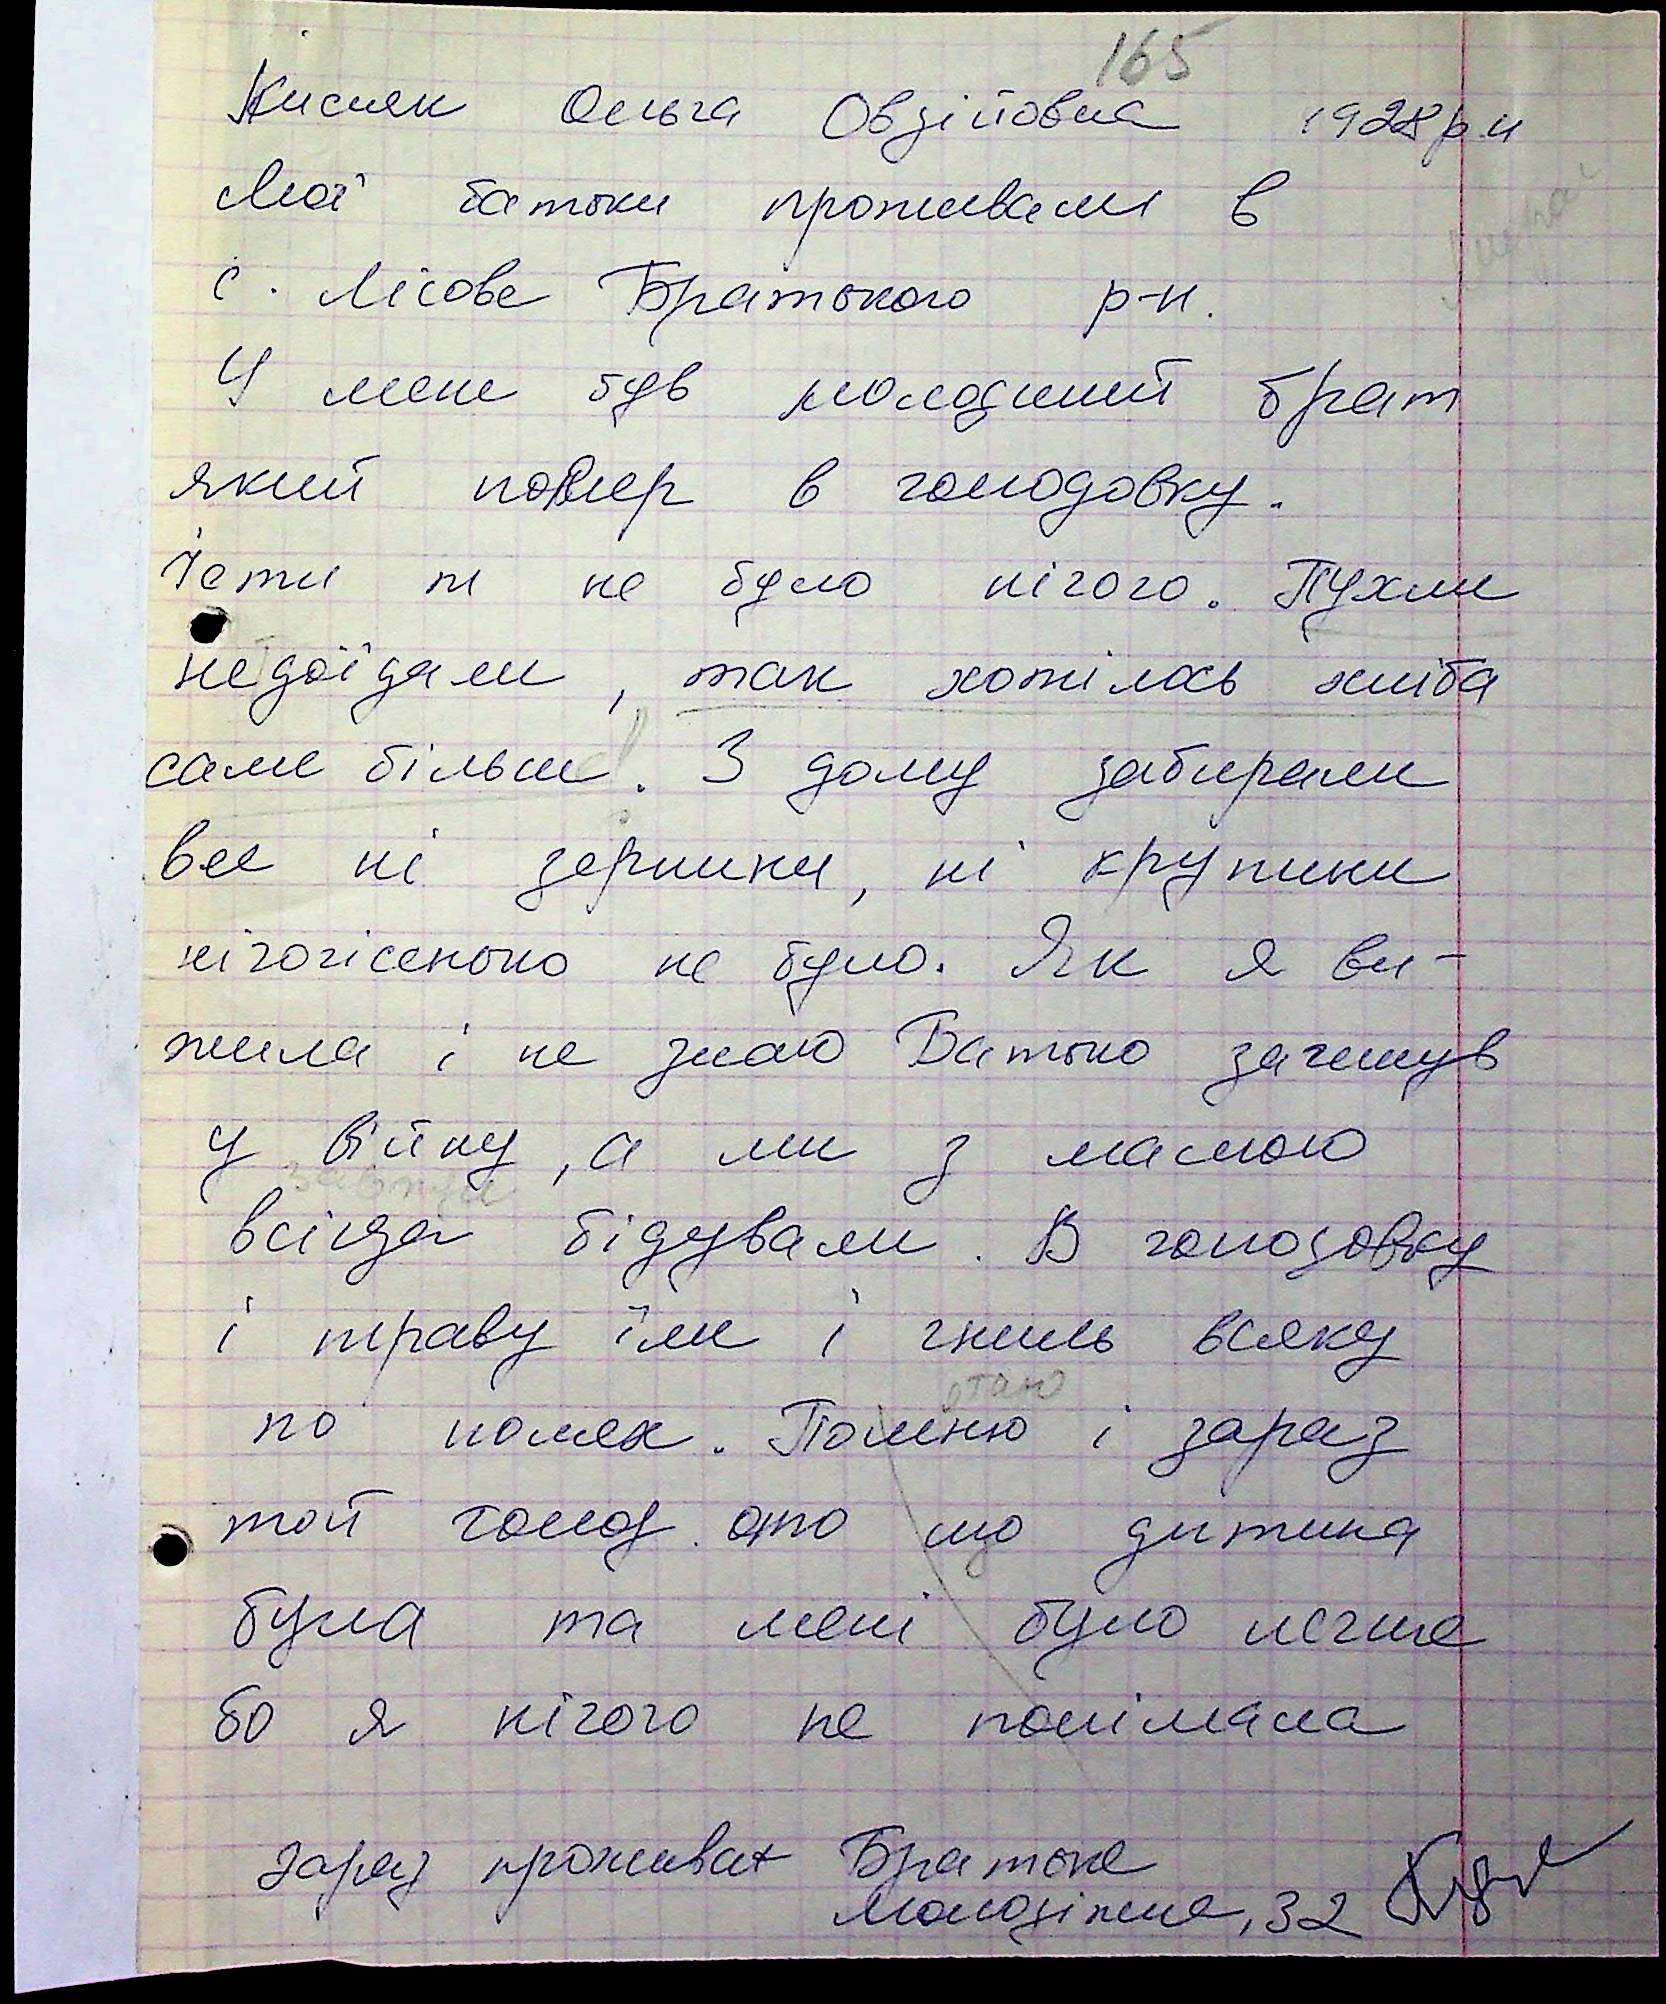 165
Кисляк Ольга Овзійовна 1928 р.н
Мої батьки проживали в
с. Лісове Братського р-н.
У мене був молодший брат
який помер в голодовку.
Їсти ж не було нічого. Пухли
недоїдали, так хотілось хліба
саме більш. З дому забирали
все ні зернини, ні крупини
нічогісенько не було. Як я ви-
жила і не знаю Батько загинув
у війну, а ми з мамою
завжди
всігда бідували. В голодовку
і траву їли і гниль всяку
по полях. Помню і зараз
той голод. ото що дитина
була та мені було легше
бо я нічого не понімала
зараз проживає Братське
Молодіжна, 32